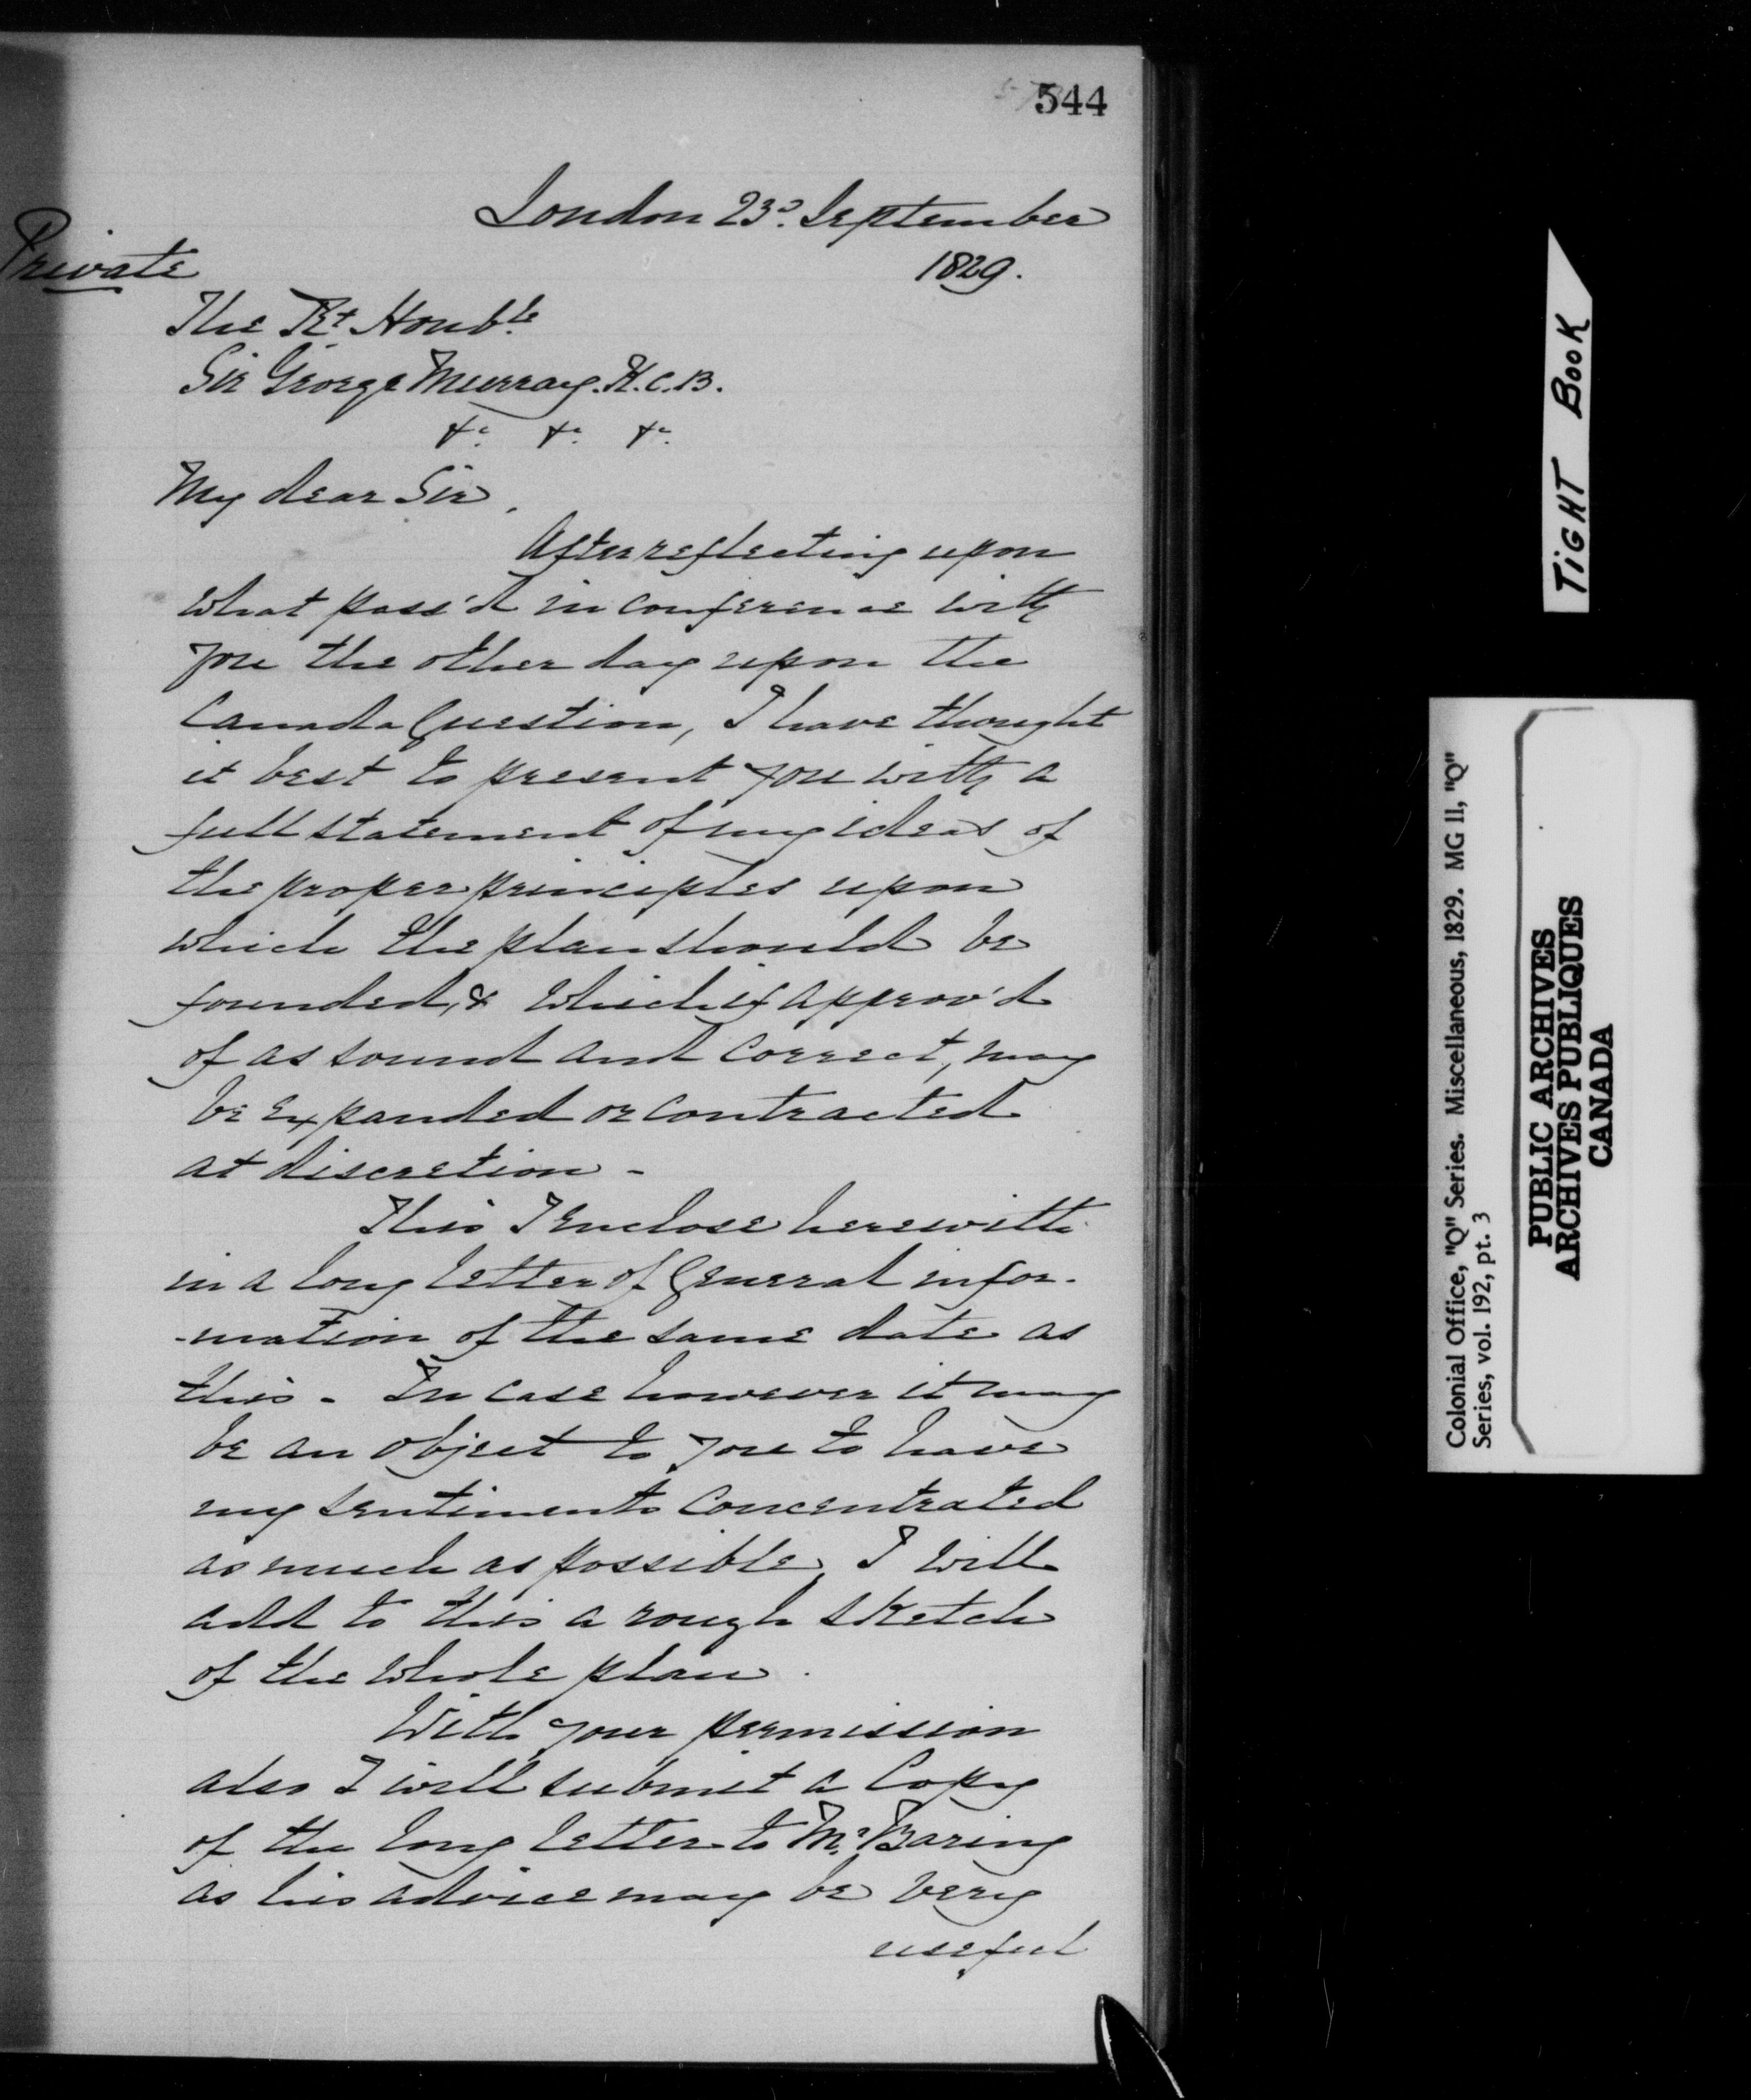 544
London 23d. September
1829.
Private
The Rt. Honble.
Sir George Murray. K.C.B.
&c. &c. &c.
My dear Sir,
After reflecting upon
what pass'd in conference with
you the other day upon the
Canada Question, I have thought
it best to present you with a
full statement of my ideas of
the proper principles upon
which the plan should be
founded, & which if approv'd
of as sound and correct, may
be expanded or contracted
at discretion -
This I enclose herewith
in a long letter of General infor-
-mation of the same date as
this - In case however it may
be an object to you to have
my sentiments concentrated
as much as possible, I will
add to this a rough sketch
of the whole plan.
With your permission
also I will submit a Copy
of the long letter to Mr. Baring
as his advice may be very
useful
TIGHT BOOK
Colonial Office, "Q" Series. Miscellaneous, 1829. MG 11, "Q"
Series, vol. 192, pt. 3
PUBLIC ARCHIVES
ARCHIVES PUBLIQUES
CANADA